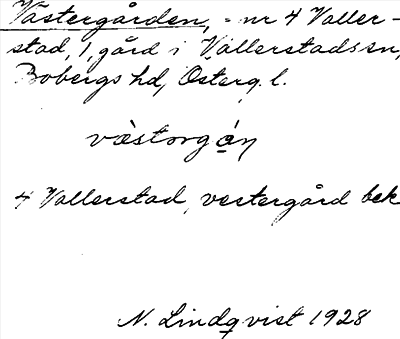 Västergården, = nr 4 Valler-
stad, 1 gård i Vallerstads sn,
Bobergs hd, Österg. l.
vàstorgá̱n
4 Vallerstad, vestergård bek
N. Lindqvist 1928